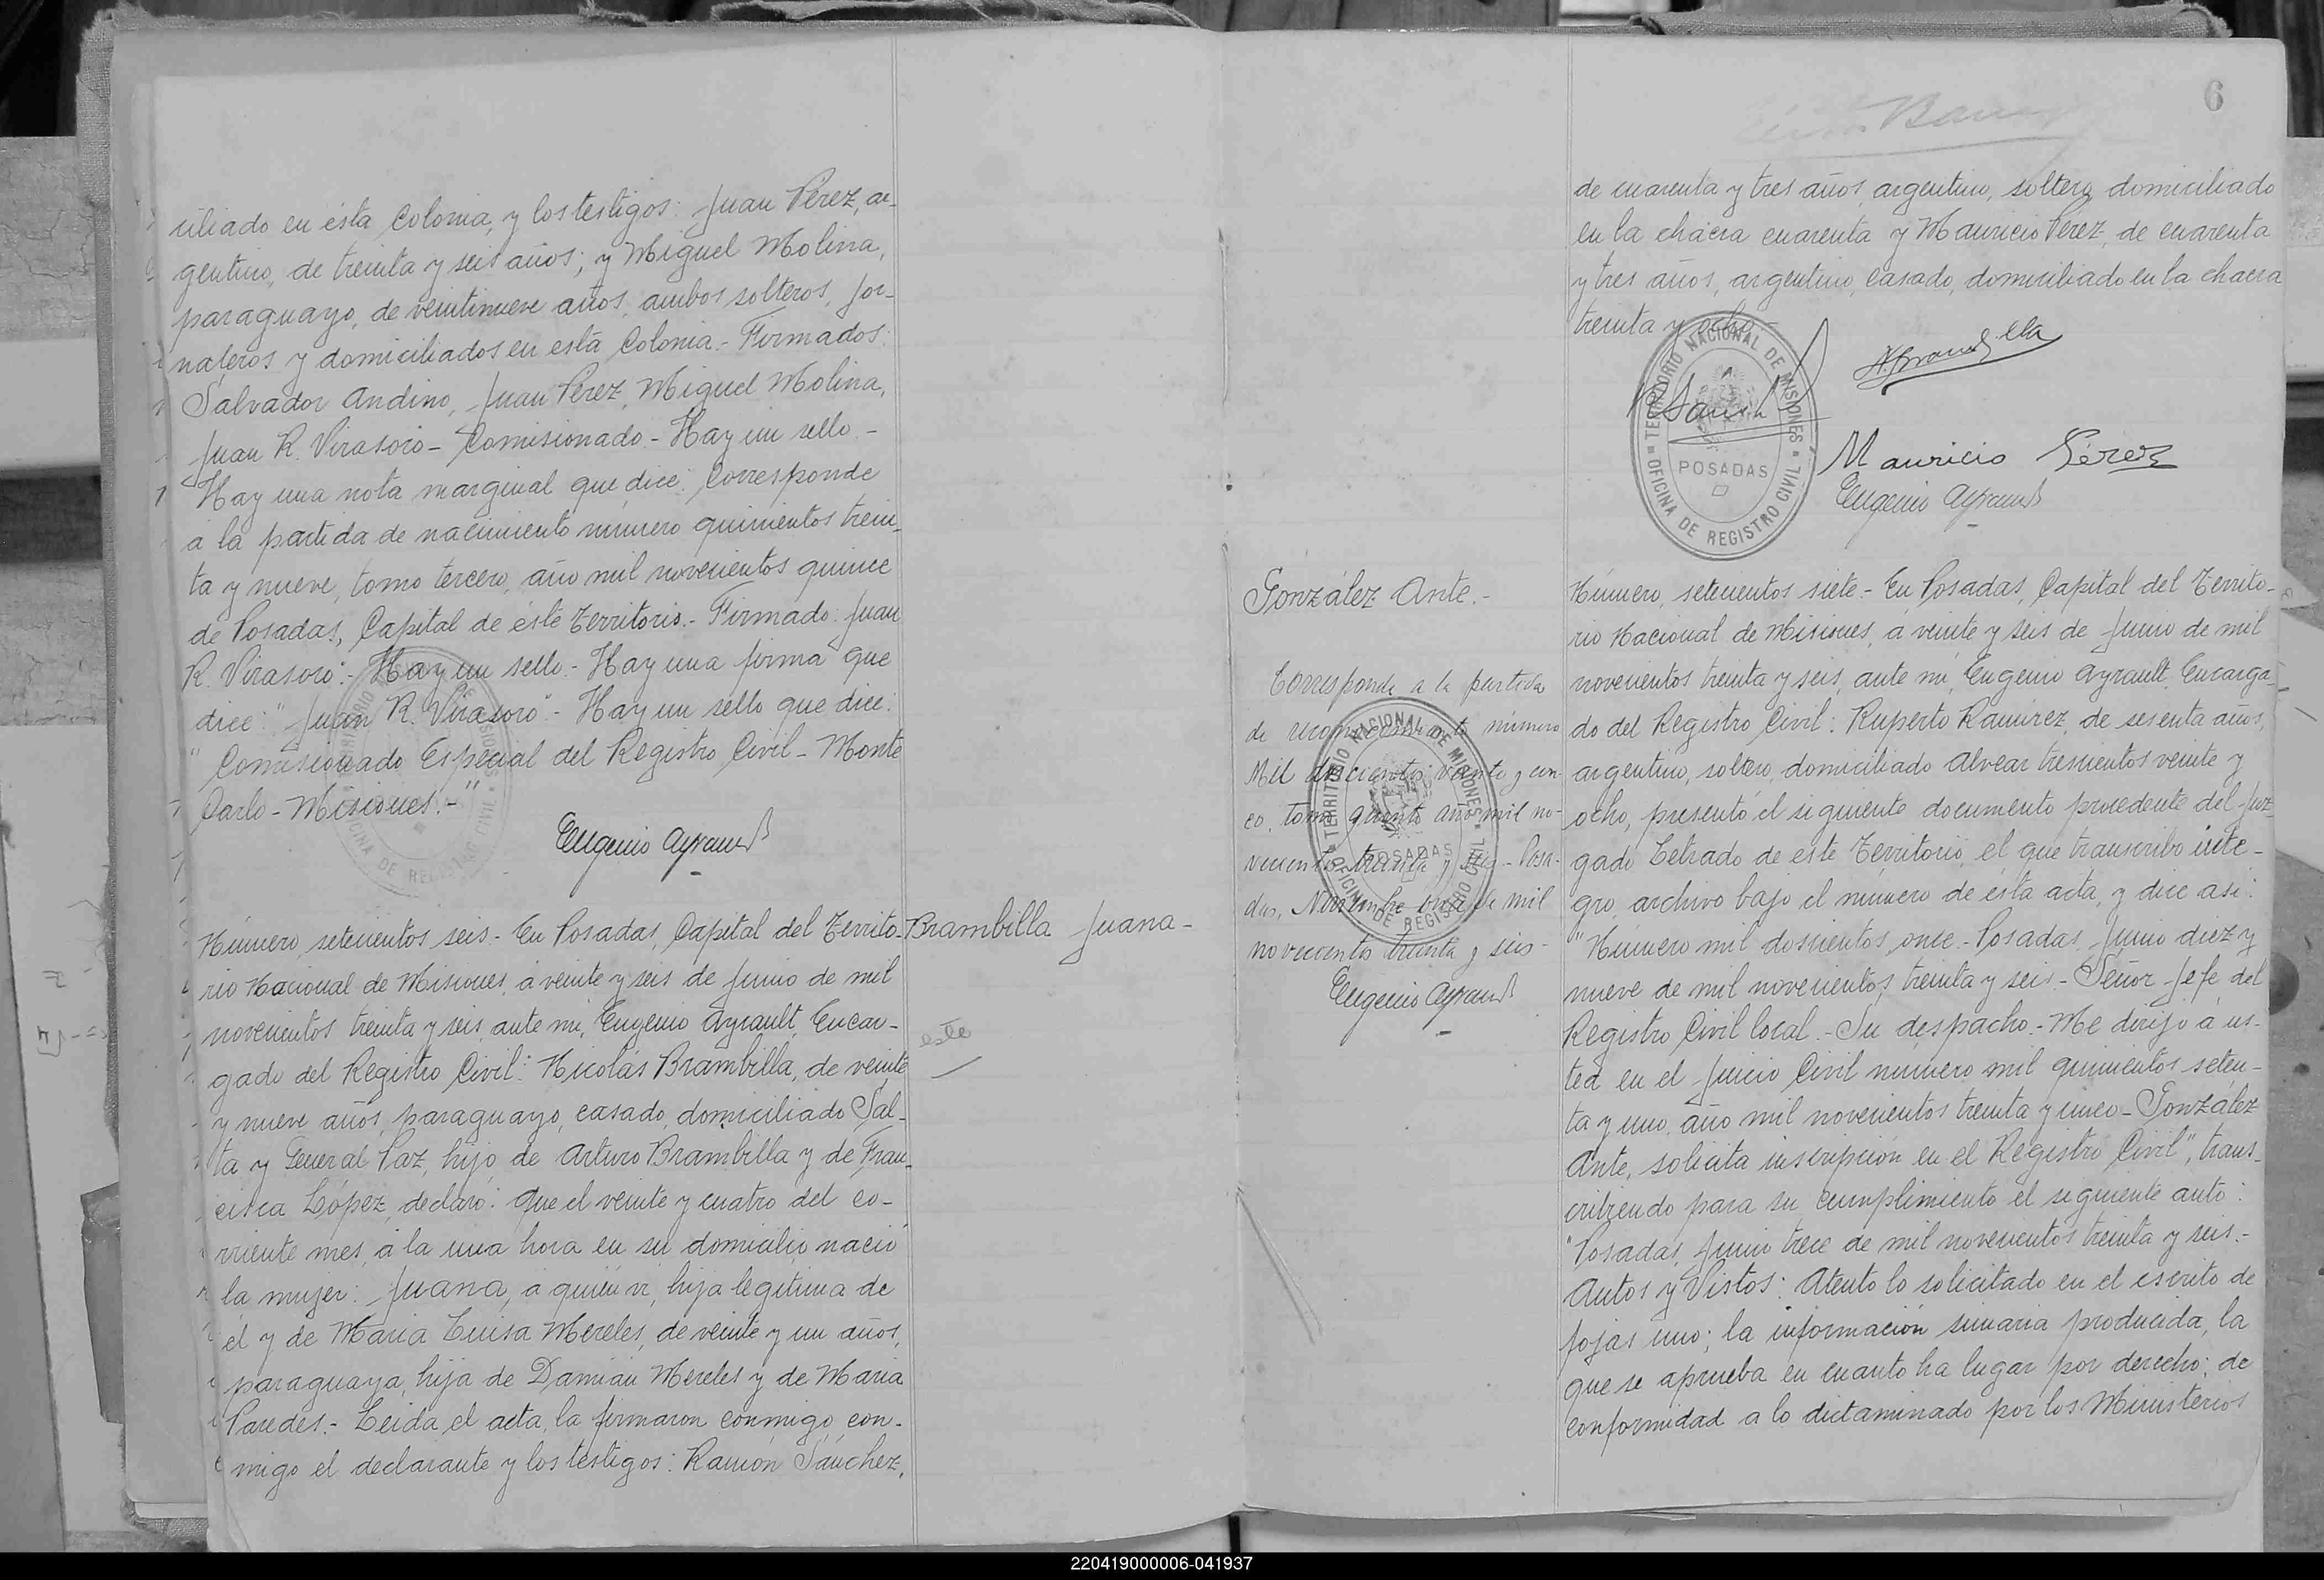 ciliado en ésta Colonia, y los testigos: Juan Pérez, ar-
gentino, de treinta y seis años; y Miguel Molina,
paraguayo, de veintinueve años, ambos solteros, jor-
naleros y domiciliados en esta Colonia.- Firmados:
Salvador Andino, Juan Pérez, Miguel Molina,
Juan R. Virasoro - Comisionado.- Hay un sello.-
Hay una nota marginal que dice: Corresponde
a la partida de nacimiento número quinientos trein-
ta y nueve, tomo tercero, año mil novecientos quince
de Posadas, Capital de éste Territorio.- Firmado: Juan
R. Virasoro".- Hay un sello.- Hay una firma que
dice: "Juan R. Virasoro".- Hay un sello que dice:
"Comisionado Especial del Registro Civil - Monte
Carlo - Misiones.-"
Eugenio Ayrault
Brambilla Juana-
Número, setecientos seis.- En Posadas, Capital del Territo-
rio Nacional de Misiones, a veinte y seis de Junio de mil
novecientos treinta y seis, ante mi, Eugenio Ayrault, Encar-
gado del Registro Civil: Nicolás Brambilla, de veinte
y nueve años, paraguayo, casado, domiciliado Sal-
ta y General Paz, hijo de Arturo Brambilla y de Fran-
cisca López, declaró: Que el veinte y cuatro del co-
rriente mes, a la una hora en su domicilio nació
la mujer: Juana, a quien vi, hija legítima de
él y de Maria Luisa Mereles, de veinte y un años,
paraguaya, hija de Damián Mereles y de Maria
Paredes.- Leida el acta, la firmaron conmigo, con-
migo el declarante y los testigos: Ramón Sánchez,
este
6
de cuarenta y tres años, argentino, soltero, domiciliado
en la chacra cuarenta y Mauricio Pérez, de cuarenta
y tres años, argentino, casado, domiciliado en la chacra
treinta y ocho.-
TERRITORIO NACIONAL DE MISIONES
POSADAS
OFICINA DE REGISTRO CIVIL
Mauricio Pérez
Eugenio Ayrault
González Ante.-
Corresponde a la partida
de reconocimiento número
Mil doscientos veinte y cin-
co, tomo quinto año mil no-
vecientos treinta y seis.- Posa-
das, Noviembre once de mil
novecientos treinta y seis-
Eugenio Ayrault
TERRITORIO NACIONAL DE MISIONES
POSADAS
OFICINA DE REGISTRO CIVIL
Número, setecientos siete.- En Posadas, Capital del Territo-
rio Nacional de Misiones, a veinte y seis de Junio de mil
novecientos treinta y seis, ante mi, Eugenio Ayrault, Encarga-
do del Registro Civil: Ruperto Ramirez, de sesenta años,
argentino, soltero, domiciliado Alvear trescientos veinte y
ocho, presentó el siguiente documento procedente del Juz-
gado Letrado de este Territorio, el que transcribo ínte-
gro, archivo bajo el número de ésta acta, y dice asi:
"Número mil doscientos once.- Posadas, Junio diez y
nueve de mil novecientos treinta y seis.- Señor Jefe del
Registro Civil local.- Su despacho.- Me dirijo a us-
ted en el Juicio Civil número mil quinientos seten-
ta y uno, año mil novecientos treinta y cinco - González
Ante, solicita inscripción en el Registro Civil", trans-
cribiendo para su cumplimiento el siguiente auto:
"Posadas, Junio trece de mil novecientos treinta y seis.-
Autos y Vistos: Atento lo solicitado en el escrito de
fojas uno; la información sumaria producida, la
que se aprueba en cuanto ha lugar por derecho; de
conformidad a lo dictaminado por los Ministerios
220419000006-041937